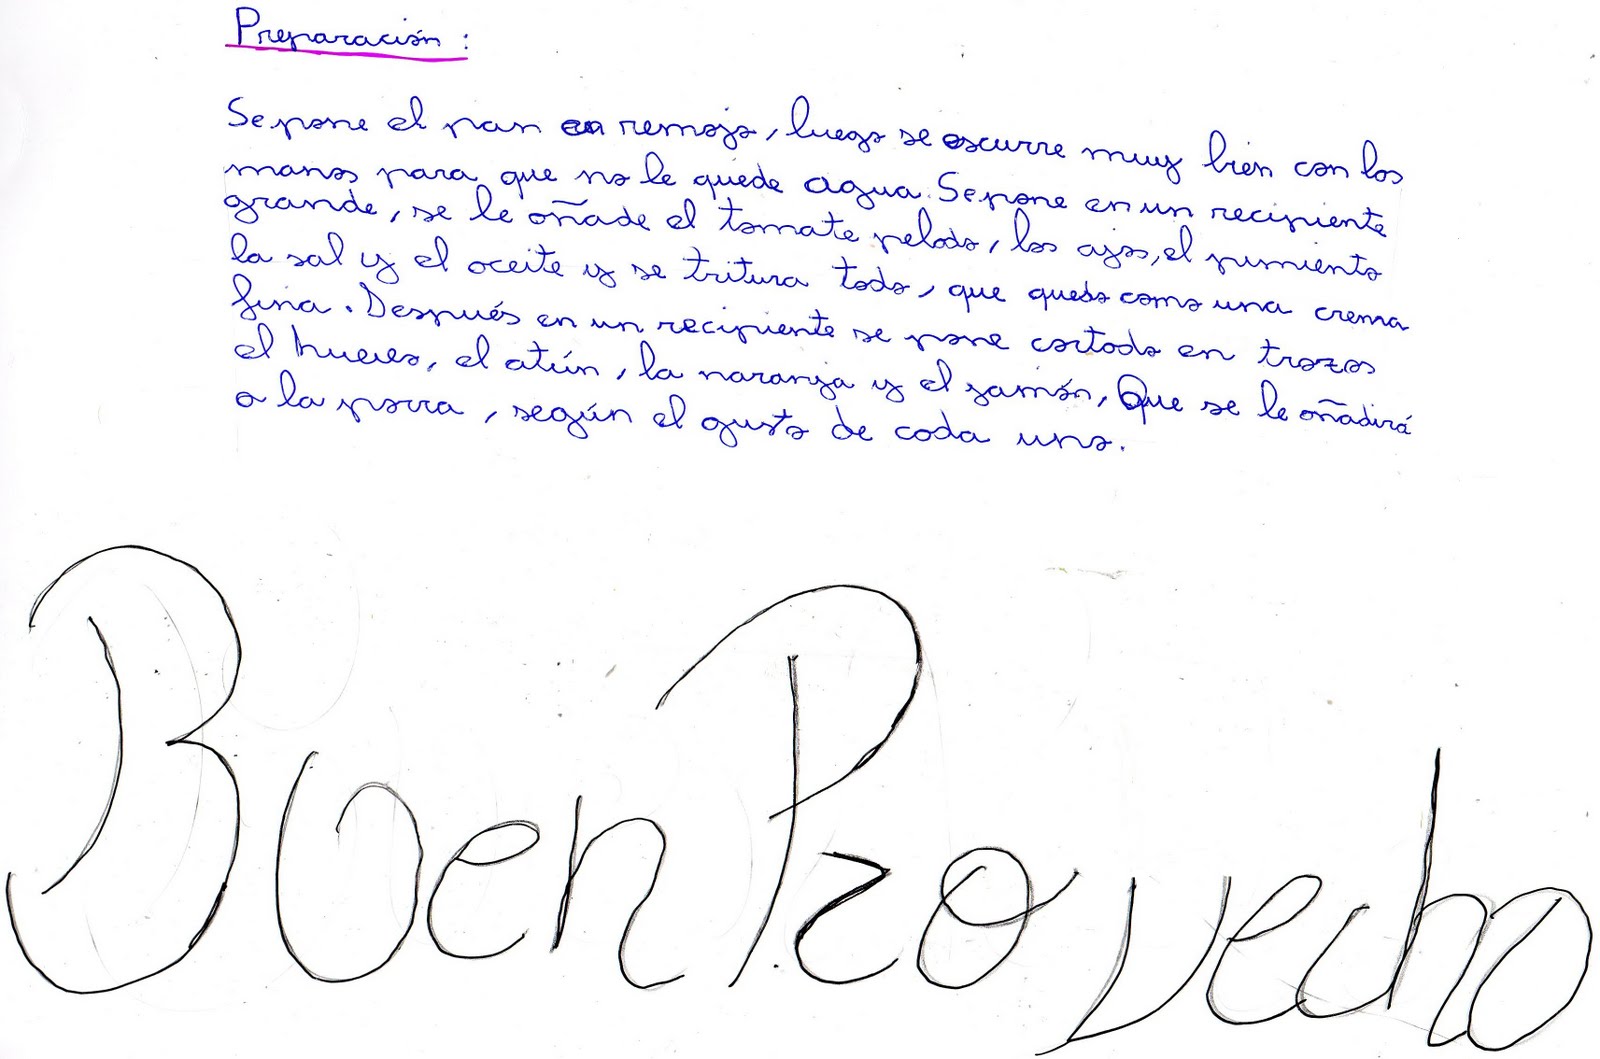 Preparación:
Se pone el pan en remojo, luego se escurre muy bien con las
manos para que no le quede agua. Se pone en un recipiente
grande, se le añade el tomate pelado, los ajos, el pimiento
la sal y el aceite y se tritura todo, que queda como una crema
fina. Después en un recipiente se pone cortado en trozos
el huevo, el atún, la naranja y el jamón, Que se le añadirá
a la porra, según el gusto de cada uno.
Buen Provecho